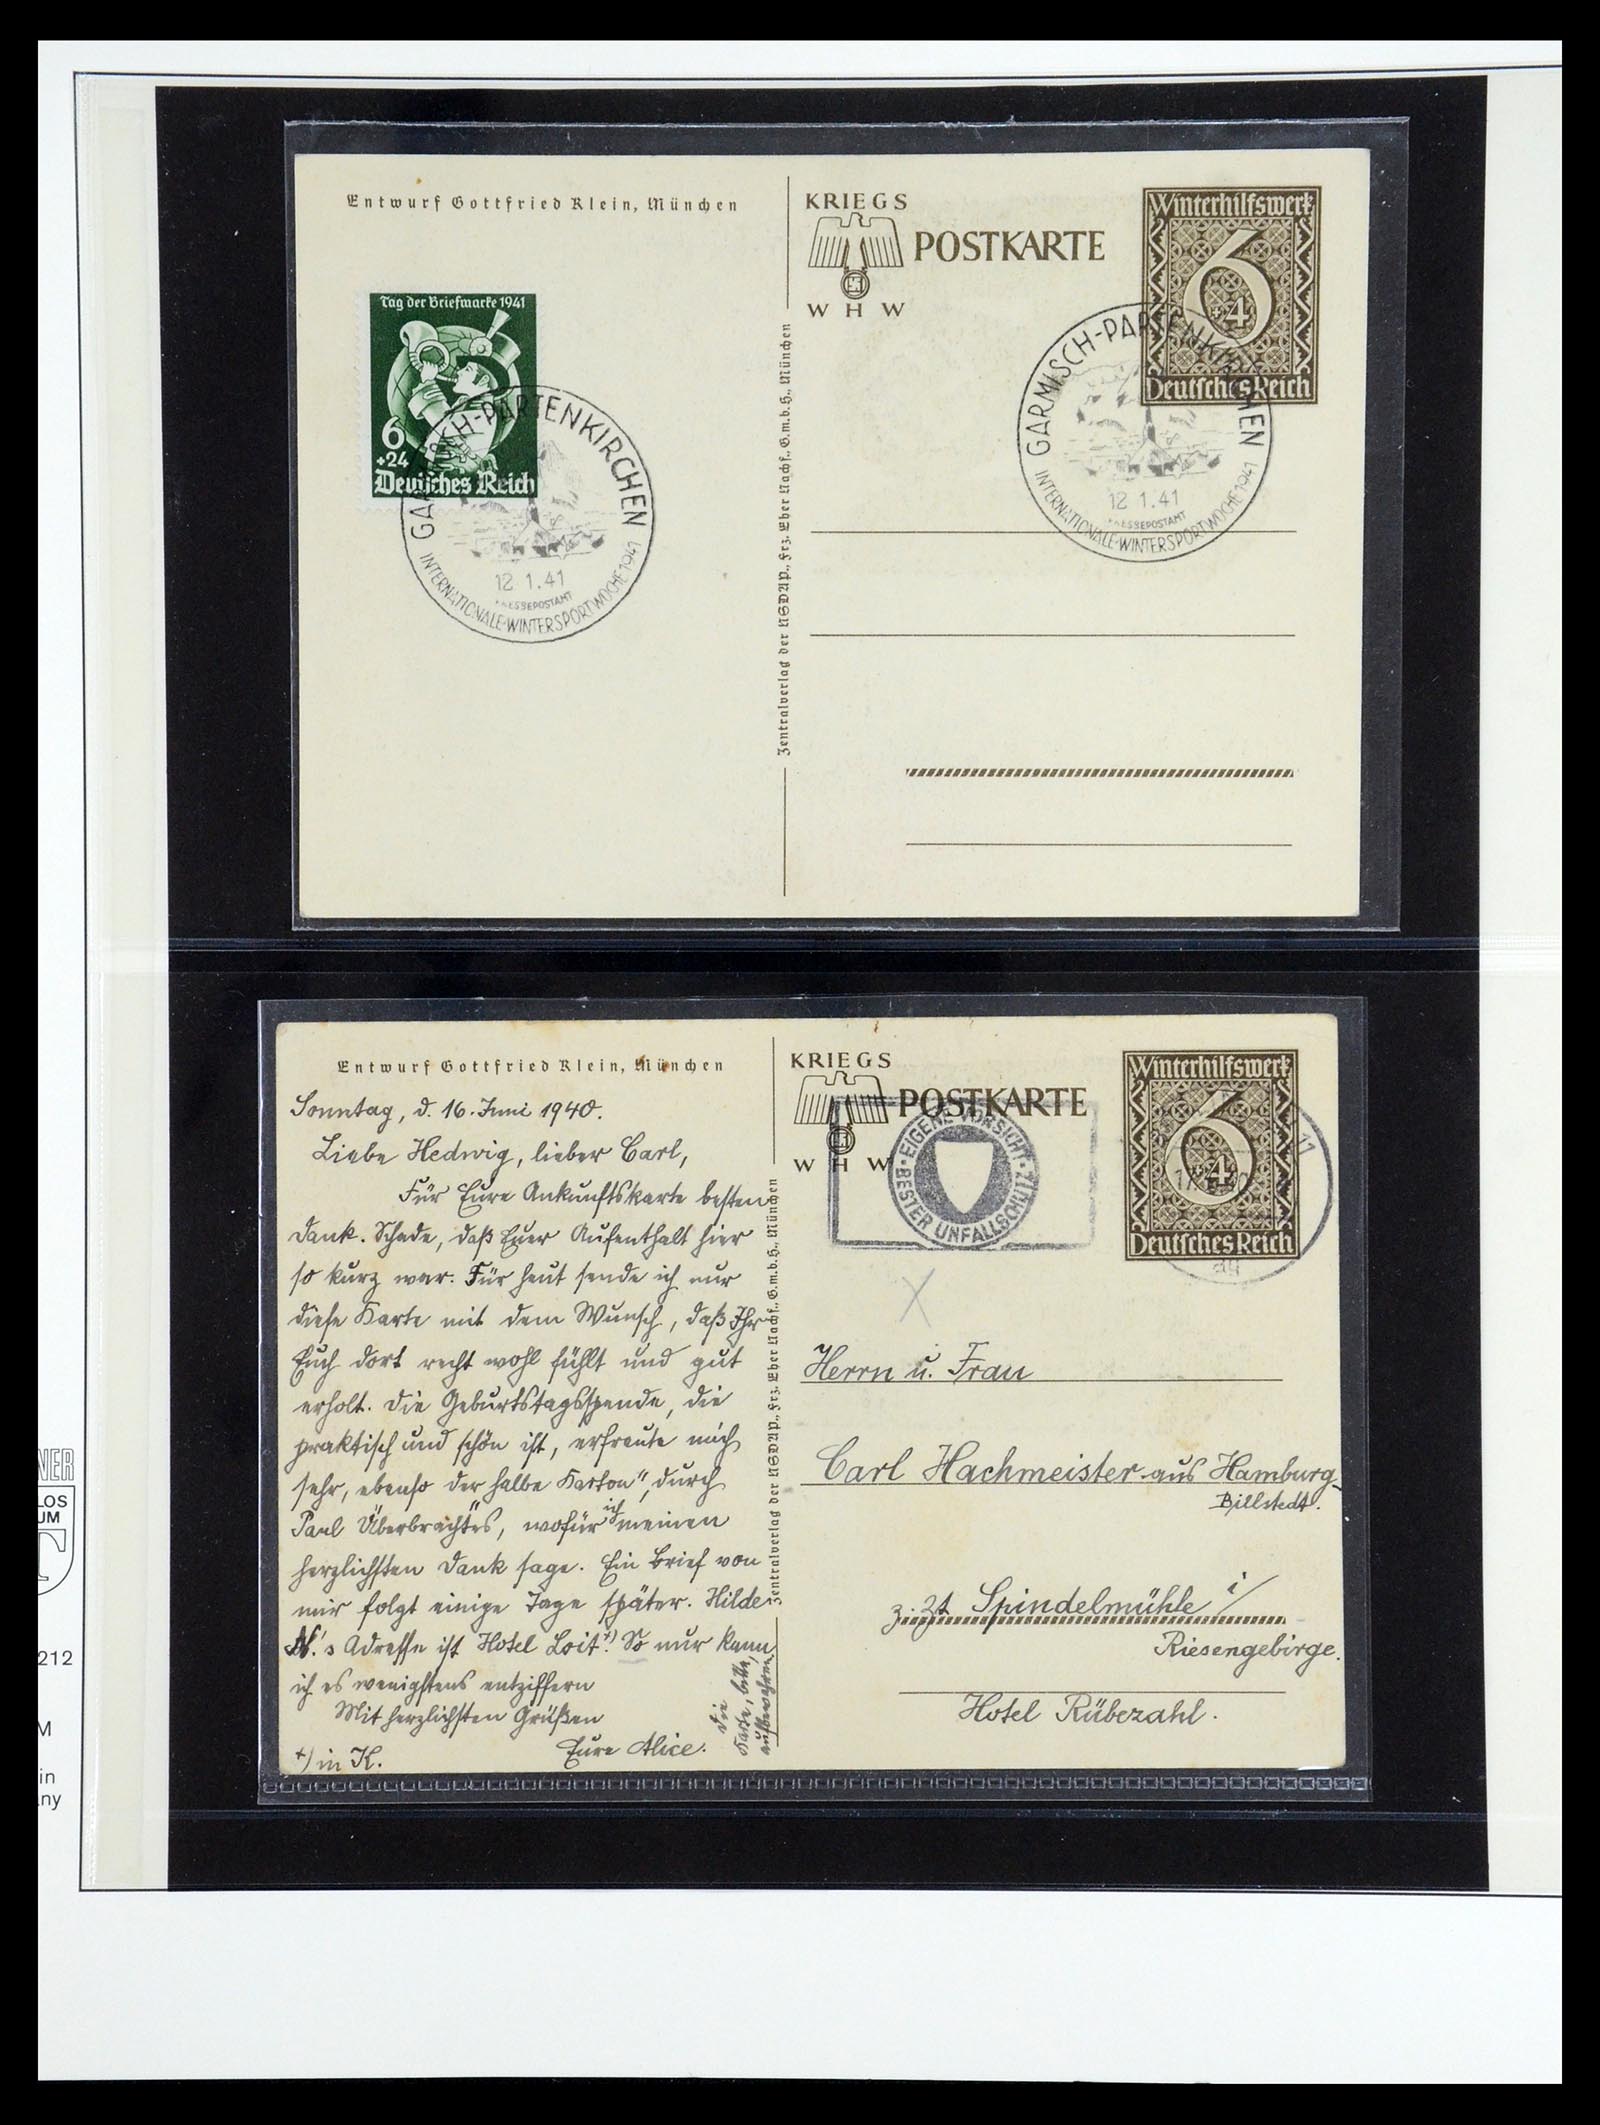 Entwurf Gottfried Klein, München
KRIEGS
POSTKARTE
W H W
Winterhilfswerk
6
+4
Deutsches Reich
Tag der Briefmarke 1941
6
+24
Deutsches Reich
GARMISCH-PARTENKIRCHEN
12.1.41
PRESSEPOSTAMT
INTERNATIONALE-WINTERSPORTWOCHE 1941
GARMISCH-PARTENKIRCHEN
12.1.41
PRESSEPOSTAMT
INTERNATIONALE-WINTERSPORTWOCHE 1941
Zentralverlag der NSDAP., Frz. Eher Nachf. G.m.b.H., München
Entwurf Gottfried Klein, München
KRIEGS
POSTKARTE
W H W
Winterhilfswerk
6
+4
Deutsches Reich
EIGENE VORSICHT
BESTER UNFALLSCHUTZ
Zentralverlag der NSDAP., Frz. Eher Nachf. G.m.b.H., München
Sonntag, d. 16. Juni 1940.
Liebe Hedwig, lieber Carl,
Für Eure Ankunftskarte besten
Dank. Schade, daß Euer Aufenthalt hier
so kurz war. Für heut sende ich nur
diese Karte mit dem Wunsch, daß Ihr
Euch dort recht wohl fühlt und gut
erholt. Die Geburtstagsspende, die
praktisch und schön ist, erfreute mich
sehr, ebenso der halbe Karton", durch
Paul Überbrachtes, wofür ich meinen
herzlichsten Dank sage. Ein Brief von
mir folgt einige Tage später. Hilde
N.'s Adresse ist Hotel Loit +) So nur kann
ich es wenigstens entziffern
Mit herzlichsten Grüßen
Eure Alice.
+) in K.
Die
Karte, bitte,
aufbewahren
Herrn u. Frau
Carl Hachmeister aus Hamburg-
Billstedt.
z. Zt Spindelmühle i/
Riesengebirge.
Hotel Rübezahl.
NER
LOS
UM
212
M
in
ny